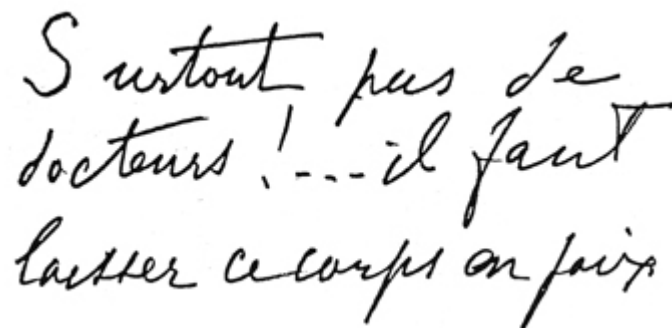 Surtout pas de
docteurs !... il faut
laisser ce corps en paix